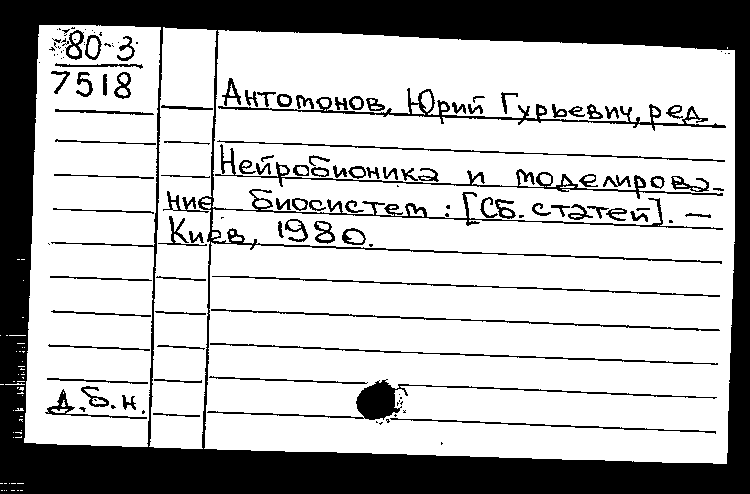 80-3
7518
Антомонов, Юрий Гурьевич, ред.
Нейробионика и моделирова-
ние биосистем : [Сб. статей]. —
Киев, 1980.
д.б.н.